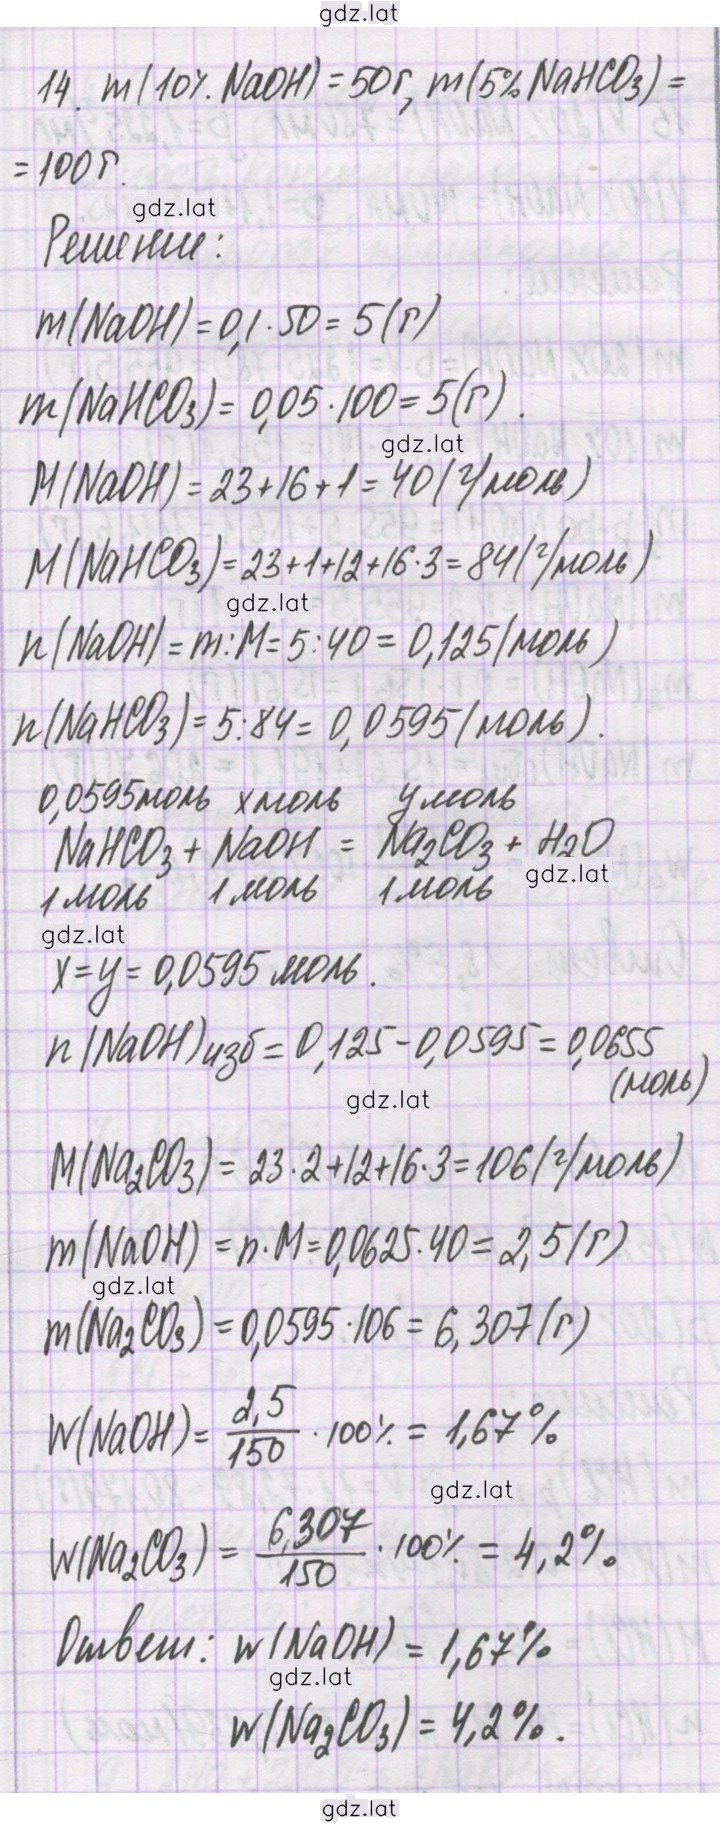 gdz.lat
14. m(10%. NaOH)=50г, m(5% NaHCO3)=
=100г.
gdz.lat
Решение:
m(NaOH)=0,1·50=5(г)
m(NaHCO3)=0,05·100=5(г).
gdz.lat
M(NaOH)=23+16+1=40(г/моль)
M(NaHCO3)=23+1+12+16·3=84(г/моль)
gdz.lat
n(NaOH)=m:M=5:40=0,125(моль)
n(NaHCO3)=5:84=0,0595(моль).
0,0595моль xмоль yмоль
NaHCO3+NaOH = Na2CO3+H2O
gdz.lat
1моль 1моль 1моль
gdz.lat
x=y=0,0595моль.
n(NaOH)изб=0,125-0,0595=0,0655
(моль)
gdz.lat
M(Na2CO3)=23·2+12+16·3=106(г/моль)
m(NaOH)=n·M=0,0625·40=2,5(г)
gdz.lat
m(Na2CO3)=0,0595·106=6,307(г)
W(NaOH)=2,5/150·100%=1,67%
gdz.lat
W(Na2CO3)=6,307/150·100%=4,2%.
Ответ: w(NaOH)=1,67%
gdz.lat
w(Na2CO3)=4,2%.
gdz.lat